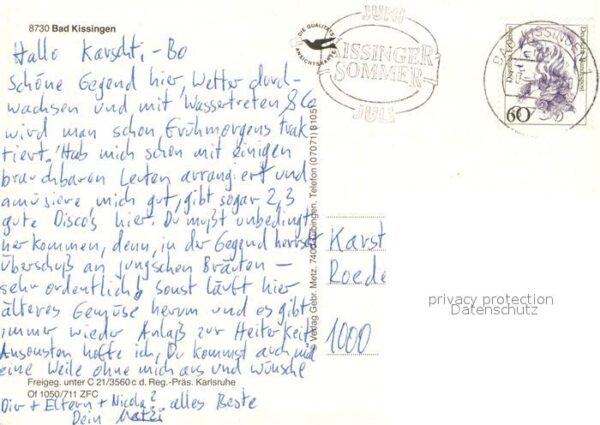 8730 Bad Kissingen
Hallo Karschti,-Bo
Schöne Gegend hier, Wetter durch-
wachsen und mit Wassertreten & Co
wird man schon Frühmorgens trak
tiert. Hab mich schon mit einigen
brauchbaren Leuten arrangiert und
amüsiere mich gut, gibt sogar 2,3
gute Disco's hier. Du mußt unbedingt
herkommen, denn, in der Gegend herrscht
Überschuß an jungschen Bräuten –
sehr ordentlich! Sonst läuft hier
älteres Gemüse herum und es gibt
immer wieder Anlaß zur Heiterkeit
Ansonsten hoffe ich, Du kommst auch mal
eine Weile ohne mich aus und wünsche
Freigeg. unter C 21/3560 c d. Reg.-Präs. Karlsruhe
Of 1050/711 ZFC
Dir + Eltern + Nicola? alles Beste
Dein
DIE QUALITÄTS
ANSICHTSKARTE
© Verlag Gebr. Metz, 7400 Tübingen, Telefon (07071) 8105
JUNI
KISSINGER
SOMMER
JULI
BAD KISSINGEN 1
Deutsche Bundespost
60
Karst
Roede
1000
privacy protection
Datenschutz